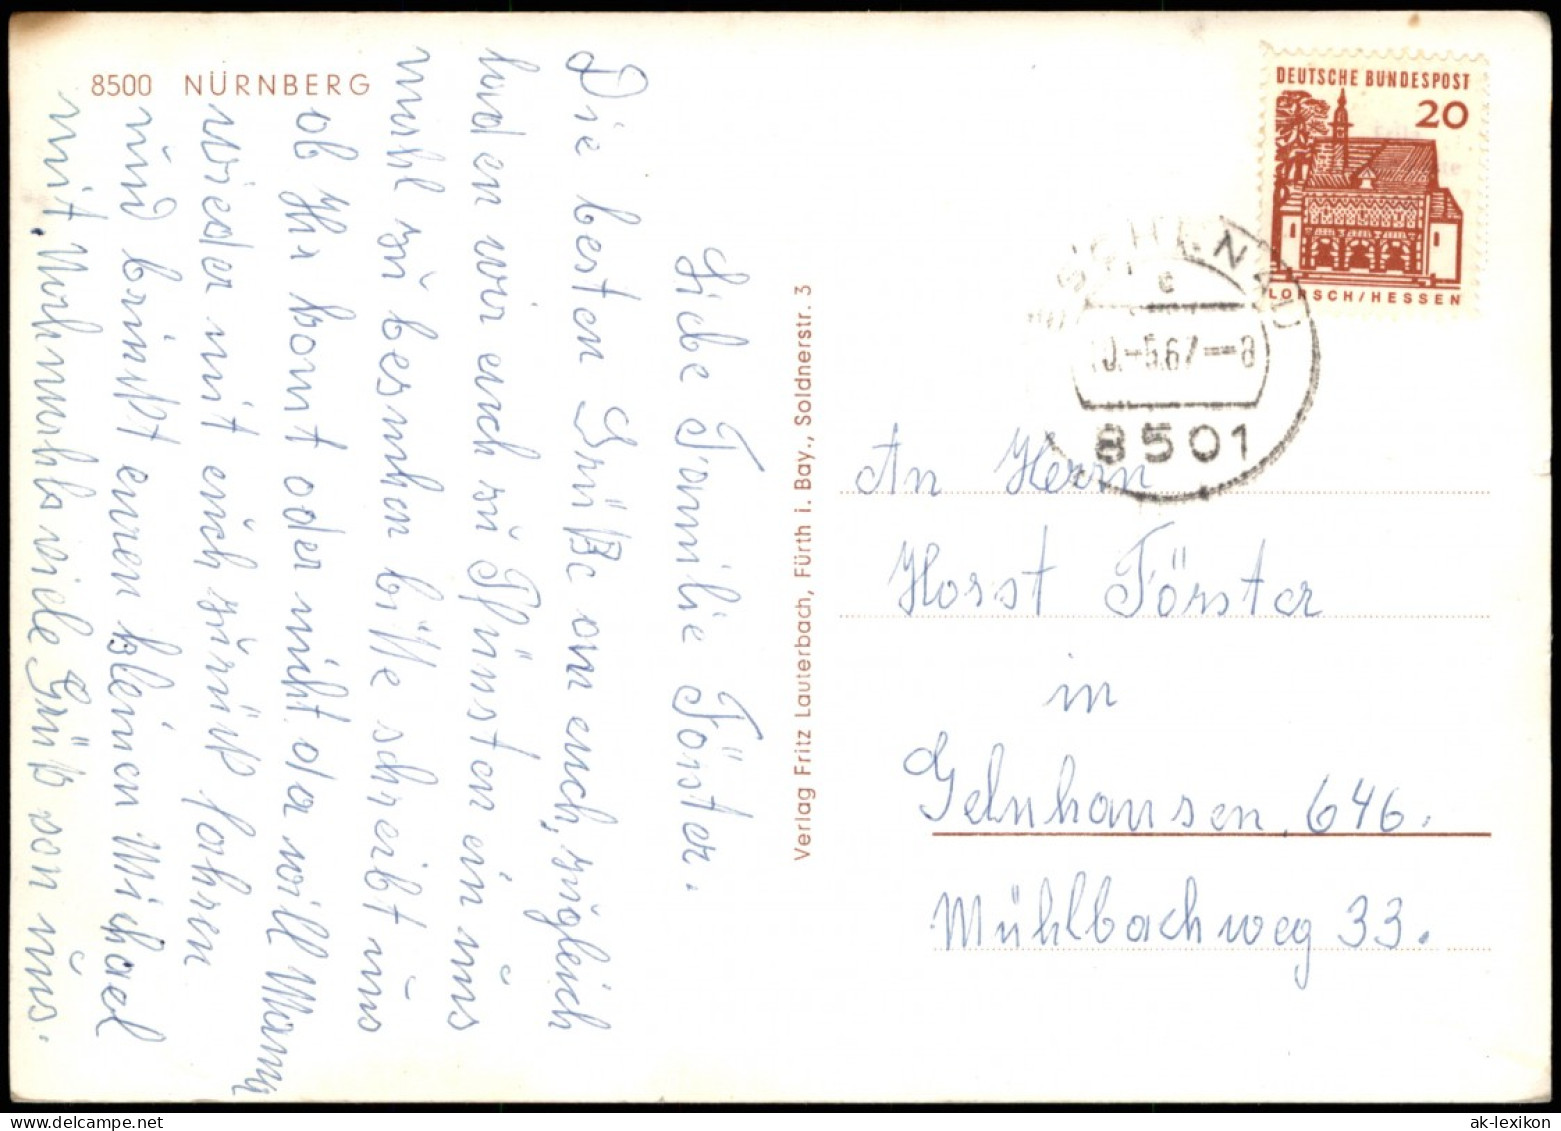 8500 NÜRNBERG
Liebe Familie Förster.
Die besten Grüße an euch, zugleich
laden wir euch zu Pfünsten ein uns
mahl zu besuchen bitte schreibt uns
ob Ihr komt oder nicht da will Mama
wieder mit euch zurück fahren
und bringt euren kleinen Michael
mit. Nochmahls viele Grüß von uns.
Verlag Fritz Lauterbach, Fürth i. Bay., Soldnerstr. 3
DEUTSCHE BUNDESPOST
20
LORSCH/HESSEN
c
-5.67--8
8501
An Herrn
Horst Förster
in
Gelnhausen 646.
Mühlbachweg 33.
ak-lexikon